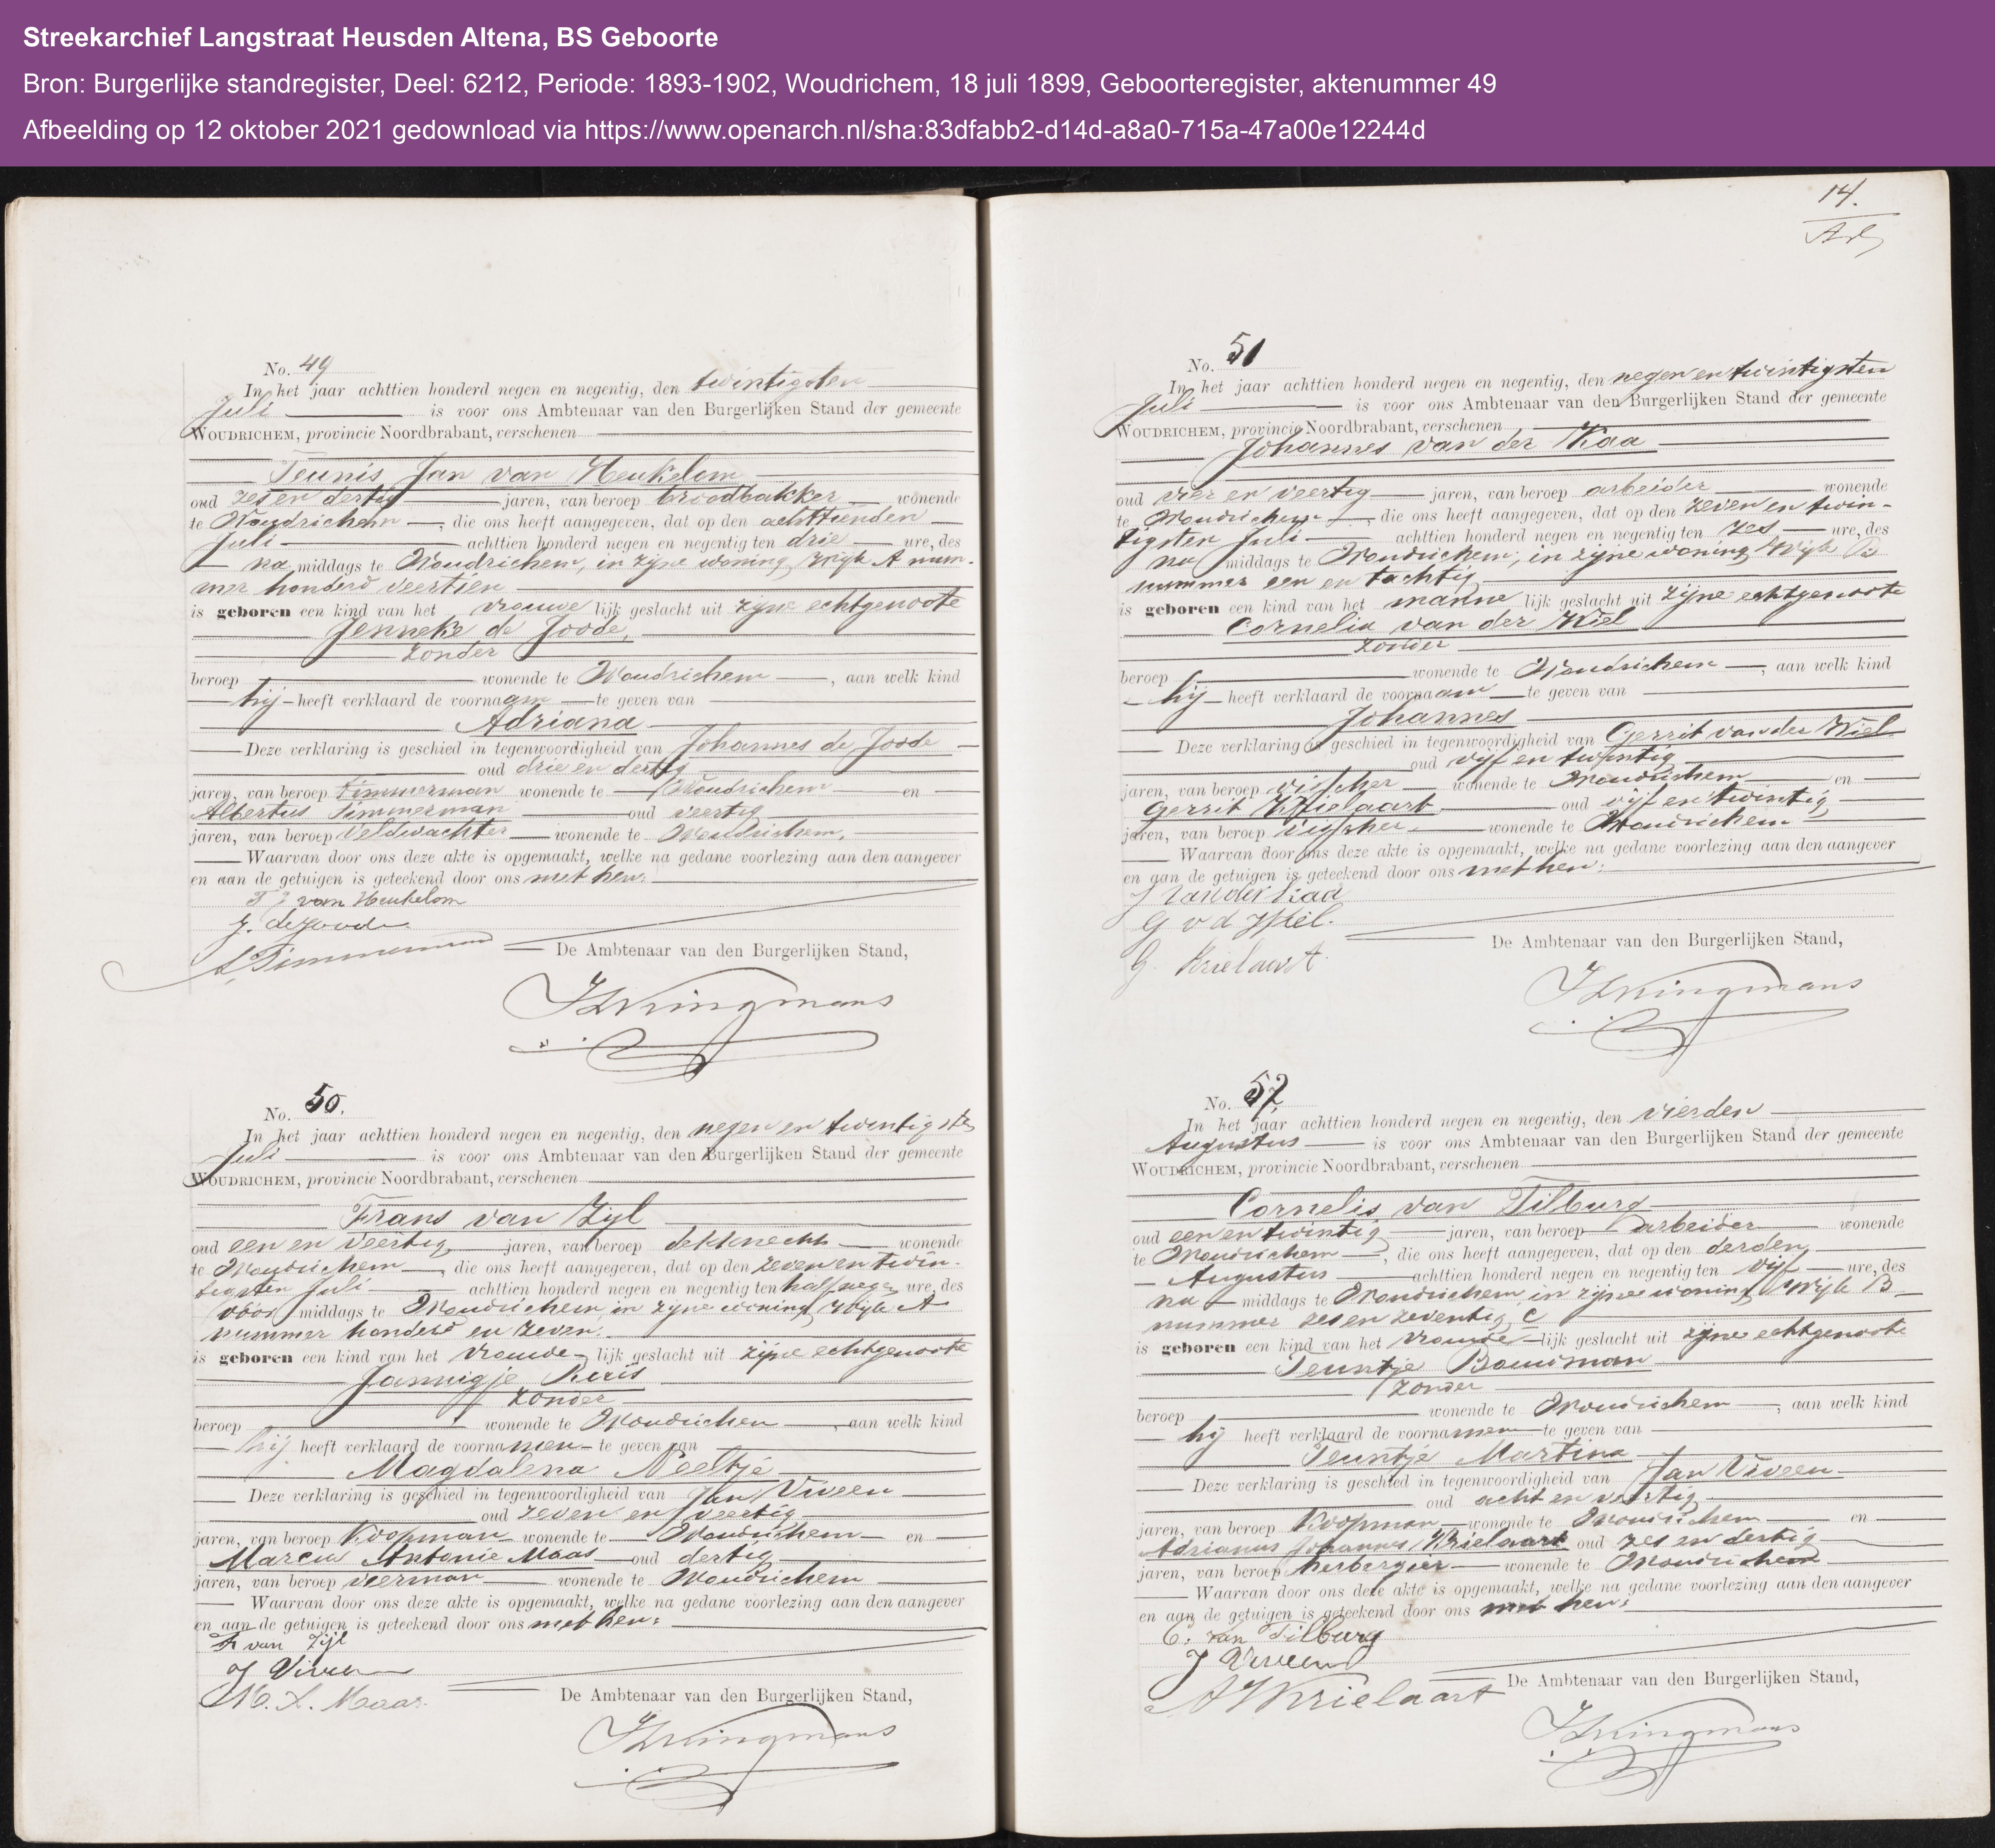 Streekarchief Langstraat Heusden Altena, BS Geboorte
Bron: Burgerlijke standregister, Deel: 6212, Periode: 1893-1902, Woudrichem, 18 juli 1899, Geboorteregister, aktenummer 49
Afbeelding op 12 oktober 2021 gedownload via https://www.openarch.nl/sha:83dfabb2-d14d-a8a0-715a-47a00e12244d
No. 49
In het jaar achttien honderd negen en negentig, den twintigsten
Juli is voor ons Ambtenaar van den Burgerlijken Stand der gemeente
WOUDRICHEM, provincie Noordbrabant, verschenen
Teunis Jan van Heukelom
oud zes en dertig jaren, van beroep broodbakker wonende
te Woudrichem, die ons heeft aangegeven, dat op den achttienden
Juli achttien honderd negen en negentig ten drie ure, des
na middags te Woudrichem, in zijne woning, Wijk A num-
mer honderd veertien
is geboren een kind van het vrouwe lijk geslacht uit zijne echtgenoote
Jenneke de Joode,
zonder
beroep wonende te Woudrichem, aan welk kind
hij heeft verklaard de voornaam te geven van
Adriana
Deze verklaring is geschied in tegenwoordigheid van Johannes de Joode
oud drie en dertig
jaren, van beroep timmerman wonende te Woudrichem en
Albertus Timmerman oud veertig
jaren, van beroep veldwachter wonende te Woudrichem,
Waarvan door ons deze akte is opgemaakt, welke na gedane voorlezing aan den aangever
en aan de getuigen is geteekend door ons met hen:
T J van Heukelom
J. de Joode
A Timmerman
De Ambtenaar van den Burgerlijken Stand,
No. 50.
In het jaar achttien honderd negen en negentig, den negen en twintigsten
Juli is voor ons Ambtenaar van den Burgerlijken Stand der gemeente
WOUDRICHEM, provincie Noordbrabant, verschenen
Frans van Zijl
oud een en veertig jaren, van beroep dekknecht wonende
te Woudrichem, die ons heeft aangegeven, dat op den zeven en twin-
tigsten Juli achttien honderd negen en negentig ten half negen ure, des
vóór middags te Woudrichem, in zijne woning, Wijk A
nummer honderd en zeven.
is geboren een kind van het vrouwe lijk geslacht uit zijne echtgenoote
Jannigje
zonder
beroep wonende te Woudrichem, aan welk kind
hij heeft verklaard de voornamen te geven van
Magdalena Neeltje
Deze verklaring is geschied in tegenwoordigheid van Jan Viveen
oud zeven en veertig
jaren, van beroep Koopman wonende te Woudrichem en
Antonie Maas oud dertig
jaren, van beroep veerman wonende te Woudrichem
Waarvan door ons deze akte is opgemaakt, welke na gedane voorlezing aan den aangever
en aan de getuigen is geteekend door ons met hen:
F van Zijl
J Viveen
M. A. Maas.
De Ambtenaar van den Burgerlijken Stand,
14.
No. 51
In het jaar achttien honderd negen en negentig, den negen en twintigsten
Juli is voor ons Ambtenaar van den Burgerlijken Stand der gemeente
WOUDRICHEM, provincie Noordbrabant, verschenen
Johannes van der Kaa
oud vier en veertig jaren, van beroep arbeider wonende
te Woudrichem, die ons heeft aangegeven, dat op den zeven en twin-
tigsten Juli achttien honderd negen en negentig ten zes ure, des
na middags te Woudrichem, in zijne woning Wijk B
nummer een en tachtig
is geboren een kind van het manne lijk geslacht uit zijne echtgenoote
Cornelia van der Wiel
zonder
beroep wonende te Woudrichem, aan welk kind
hij heeft verklaard de voornaam te geven van
Johannes
Deze verklaring is geschied in tegenwoordigheid van Gerrit van der Wiel
oud vijf en twintig
jaren, van beroep visscher wonende te Woudrichem en
Gerrit Krielaart oud vijf en twintig
jaren, van beroep visscher wonende te Woudrichem
Waarvan door ons deze akte is opgemaakt, welke na gedane voorlezing aan den aangever
en aan de getuigen is geteekend door ons met hen:
J van der Kaa
G v d Wiel.
G. Krielaart.
De Ambtenaar van den Burgerlijken Stand,
No. 52
In het jaar achttien honderd negen en negentig, den vierden
Augustus is voor ons Ambtenaar van den Burgerlijken Stand der gemeente
WOUDRICHEM, provincie Noordbrabant, verschenen
Cornelis van Tilburg
oud een en twintig jaren, van beroep arbeider wonende
te Woudrichem, die ons heeft aangegeven, dat op den derden
Augustus achttien honderd negen en negentig ten vijf ure, des
na middags te Woudrichem in zijne woning Wijk B
nummer zes en zeventig C
is geboren een kind van het vrouwe lijk geslacht uit zijne echtgenoote
Teuntje Bouman
zonder
beroep wonende te Woudrichem, aan welk kind
hij heeft verklaard de voornamen te geven van
Teuntje Martina
Deze verklaring is geschied in tegenwoordigheid van Jan Viveen
oud acht en veertig
jaren, van beroep Koopman wonende te Woudrichem en
Adrianus Johannes Krielaart oud zes en dertig
jaren, van beroep herbergier wonende te Woudrichem
Waarvan door ons deze akte is opgemaakt, welke na gedane voorlezing aan den aangever
en aan de getuigen is geteekend door ons met hen:
C. van Tilburg
J Viveen
A J Krielaart
De Ambtenaar van den Burgerlijken Stand,